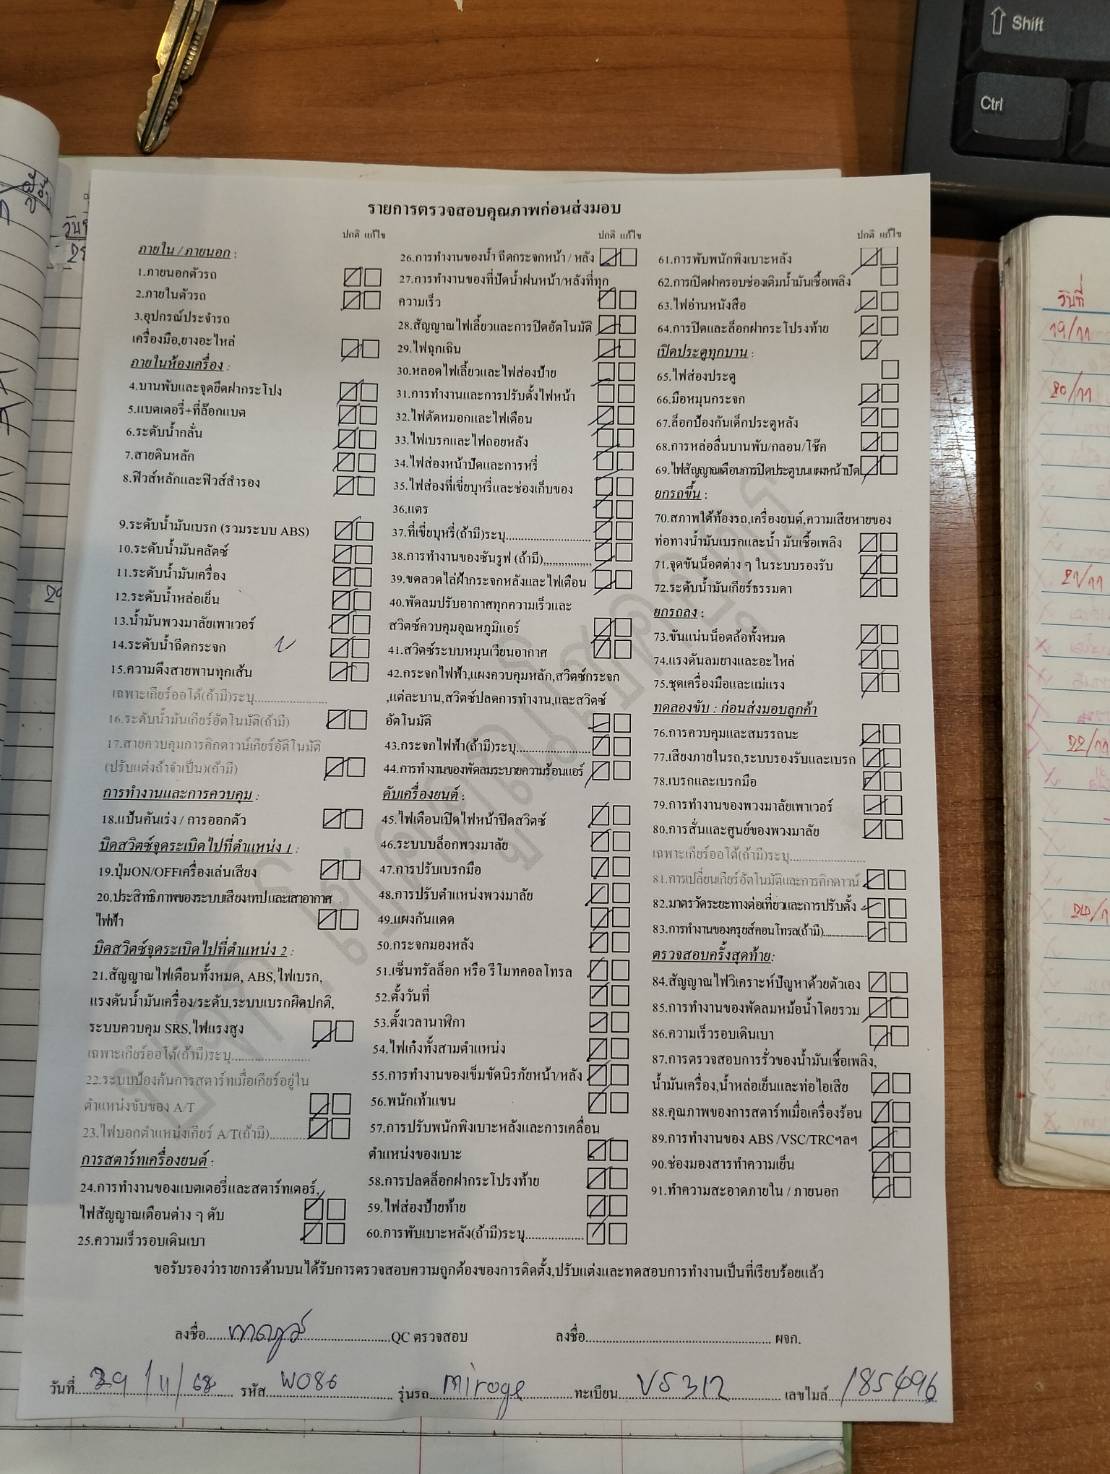 Shift
Ctrl
รายการตรวจสอบคุณภาพก่อนส่งมอบ
ปกติ แก้ไข
ภายใน / ภายนอก :
1.ภายนอกตัวรถ
2.ภายในตัวรถ
3.อุปกรณ์ประจำรถ
เครื่องมือ,ยางอะไหล่
ภายในห้องเครื่อง :
4.บานพับและจุดยึดฝากระโปง
5.แบตเตอรี่+ที่ล๊อกแบต
6.ระดับน้ำกลั่น
7.สายดินหลัก
8.ฟิวส์หลักและฟิวส์สำรอง
9.ระดับน้ำมันเบรก (รวมระบบ ABS)
10.ระดับน้ำมันคลัตช์
11.ระดับน้ำมันเครื่อง
12.ระดับน้ำหล่อเย็น
13.น้ำมันพวงมาลัยเพาเวอร์
14.ระดับน้ำฉีดกระจก
15.ความตึงสายพานทุกเส้น
เฉพาะเกียร์ออโต้(ถ้ามี)ระบุ
16.ระดับน้ำมันเกียร์อัตโนมัติ(ถ้ามี)
17.สายควบคุมการคิกดาวน์เกียร์อัติโนมัติ
(ปรับแต่งถ้าจำเป็น)(ถ้ามี)
การทำงานและการควบคุม :
18.แป้นคันเร่ง / การออกตัว
บิดสวิตซ์จุดระเบิดไปที่ตำแหน่ง 1 :
19.ปุ่มON/OFFเครื่องเล่นเสียง
20.ประสิทธิภาพของระบบเสียงเทปและเสาอากาศ
ไฟฟ้า
บิดสวิตซ์จุดระเบิดไปที่ตำแหน่ง 2 :
21.สัญญาณไฟเตือนทั้งหมด, ABS,ไฟเบรก,
แรงดันน้ำมันเครื่อง/ระดับ,ระบบเบรกผิดปกติ,
ระบบควบคุม SRS,ไฟแรงสูง
เฉพาะเกียร์ออโต้(ถ้ามี)ระบุ
22.ระบบป้องกันการสตาร์ทเมื่อเกียร์อยู่ใน
ตำแหน่งขับของ A/T
23.ไฟบอกตำแหน่งเกียร์ A/T(ถ้ามี)
การสตาร์ทเครื่องยนต์ :
24.การทำงานของแบตเตอรี่และสตาร์ทเตอร์,
ไฟสัญญาณเตือนต่าง ๆ ดับ
25.ความเร็วรอบเดินเบา
ปกติ แก้ไข
26.การทำงานของน้ำ ฉีดกระจกหน้า / หลัง
27.การทำงานของที่ปัดน้ำฝนหน้า/หลังที่ทุก
ความเร็ว
28.สัญญาณไฟเลี้ยวและการปิดอัตโนมัติ
29.ไฟฉุกเฉิน
30.หลอดไฟเลี้ยวและไฟส่องป้าย
31.การทำงานและการปรับตั้งไฟหน้า
32.ไฟตัดหมอกและไฟเตือน
33.ไฟเบรกและไฟถอยหลัง
34.ไฟส่องหน้าปัดและการหรี่
35.ไฟส่องที่เขี่ยบุหรี่และช่องเก็บของ
36.แตร
37.ที่เขี่ยบุหรี่(ถ้ามี)ระบุ
38.การทำงานของซันรูฟ (ถ้ามี)
39.ขดลวดไล่ฝ้ากระจกหลังและไฟเตือน
40.พัดลมปรับอากาศทุกความเร็วและ
สวิตซ์ควบคุมอุณหภูมิแอร์
41.สวิตซ์ระบบหมุนเวียนอากาศ
42.กระจกไฟฟ้า,แผงควบคุมหลัก,สวิตซ์กระจก
,แต่ละบาน,สวิตซ์ปลดการทำงาน,และสวิตซ์
อัตโนมัติ
43.กระจกไฟฟ้า(ถ้ามี)ระบุ
44.การทำงานของพัดลมระบายความร้อนแอร์
ดับเครื่องยนต์ :
45.ไฟเตือนเปิดไฟหน้าปิดสวิตซ์
46.ระบบบล็อกพวงมาลัย
47.การปรับเบรกมือ
48.การปรับตำแหน่งพวงมาลัย
49.แผงกันแดด
50.กระจกมองหลัง
51.เซ็นทรัลล็อก หรือ รีโมทคอลโทรล
52.ตั้งวันที่
53.ตั้งเวลานาฬิกา
54.ไฟเก๋งทั้งสามตำแหน่ง
55.การทำงานของเข็มขัดนิรภัยหน้า/หลัง
56.พนักเท้าแขน
57.การปรับพนักพิงเบาะหลังและการเคลื่อน
ตำแหน่งของเบาะ
58.การปลดล็อกฝากระโปรงท้าย
59.ไฟส่องป้ายท้าย
60.การพับเบาะหลัง(ถ้ามี)ระบุ
ปกติ แก้ไข
61.การพับพนักพิงเบาะหลัง
62.การเปิดฝาครอบช่องเติมน้ำมันเชื้อเพลิง
63.ไฟอ่านหนังสือ
64.การปิดและล็อกฝากระโปรงท้าย
เปิดประตูทุกบาน :
65.ไฟส่องประตู
66.มือหมุนกระจก
67.ล็อกป้องกันเด็กประตูหลัง
68.การหล่อลื่นบานพับ/กลอน/โช๊ค
69.ไฟสัญญาณเตือนการปิดประตูบนแผงหน้าปัด
ยกรถขึ้น :
70.สภาพใต้ท้องรถ,เครื่องยนต์,ความเสียหายของ
ท่อทางน้ำมันเบรกและน้ำ มันเชื้อเพลิง
71.จุดขันน็อตต่าง ๆ ในระบบรองรับ
72.ระดับน้ำมันเกียร์ธรรมดา
ยกรถลง :
73.ขันแน่นน็อตล้อทั้งหมด
74.แรงดันลมยางและอะไหล่
75.ชุดเครื่องมือและแม่แรง
ทดลองขับ : ก่อนส่งมอบลูกค้า
76.การควบคุมและสมรรถนะ
77.เสียงภายในรถ,ระบบรองรับและเบรก
78.เบรกและเบรกมือ
79.การทำงานของพวงมาลัยเพาเวอร์
80.การสั่นและศูนย์ของพวงมาลัย
เฉพาะเกียร์ออโต้(ถ้ามี)ระบุ
81.การเปลี่ยนเกียร์อัตโนมัติและการคิกดาวน์
82.มาตรวัดระยะทางต่อเที่ยวและการปรับตั้ง
83.การทำงานของครุยส์คอนโทรล(ถ้ามี)
ตรวจสอบครั้งสุดท้าย:
84.สัญญาณไฟวิเคราะห์ปัญหาด้วยตัวเอง
85.การทำงานของพัดลมหม้อน้ำโดยรวม
86.ความเร็วรอบเดินเบา
87.การตรวจสอบการรั่วของน้ำมันเชื้อเพลิง,
น้ำมันเครื่อง,น้ำหล่อเย็นและท่อไอเสีย
88.คุณภาพของการสตาร์ทเมื่อเครื่องร้อน
89.การทำงานของ ABS /VSC/TRCฯลฯ
90.ช่องมองสารทำความเย็น
91.ทำความสะอาดภายใน / ภายนอก
ขอรับรองว่ารายการด้านบนได้รับการตรวจสอบความถูกต้องของการติดตั้ง,ปรับแต่งและทดสอบการทำงานเป็นที่เรียบร้อยแล้ว
ลงชื่อ QC ตรวจสอบ ลงชื่อ ผจก.
วันที่ 29/11/68 รหัส W086 รุ่นรถ mirage ทะเบียน VS 312 เลขไมล์ 185496
วันที่
19/11
20/11
21/11
22/11